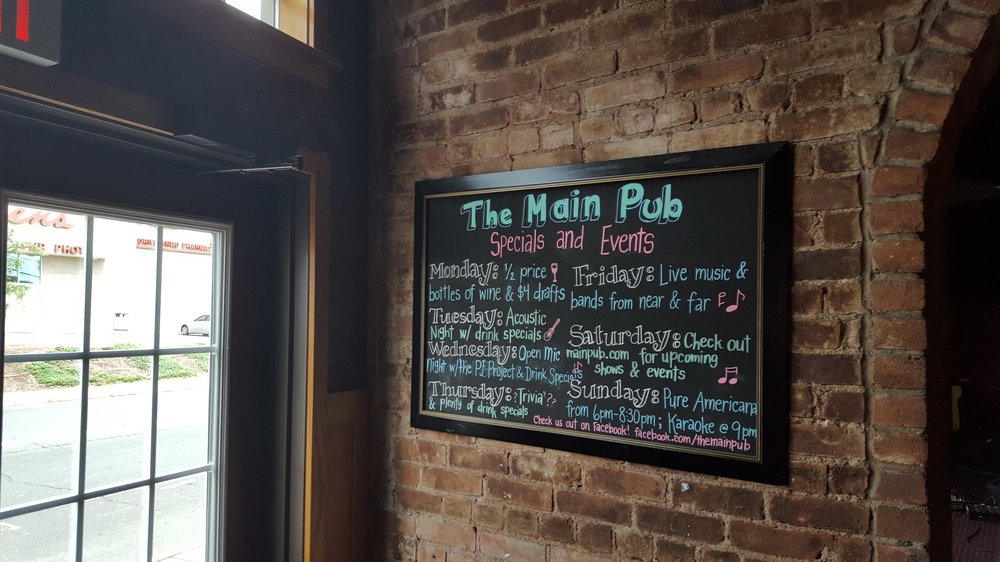 The Main Pub
Specials and Events
Monday: ½ price
bottles of wine & $4 drafts
Tuesday: Acoustic
Night w/ drink specials
Wednesday: Open Mic
Night w/the PJ Project & Drink Specials
Thursday: ?Trivia??
& plenty of drink specials
Friday: Live music &
bands from near & far
Saturday: Check out
mainpub.com for upcoming
shows & events
Sunday: Pure Americana
from 6pm-8:30pm; Karaoke @ 9pm
Check us out on facebook! facebook.com/themainpub